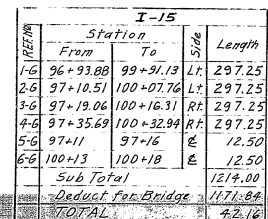 I-15
REF. Nº Station Side Length
From To
1-G 96+93.88 99+91.13 Lt. 297.25
2-G 97+10.51 100+07.76 Lt. 297.25
3-G 97+19.06 100+16.31 Rt. 297.25
4-G 97+35.69 100+32.94 Rt. 297.25
5-G 97+11 97+16 ℄ 12.50
6-G 100+13 100+18 ℄ 12.50
Sub Total 1214.00
Deduct for Bridge 1171.84
TOTAL 42.16